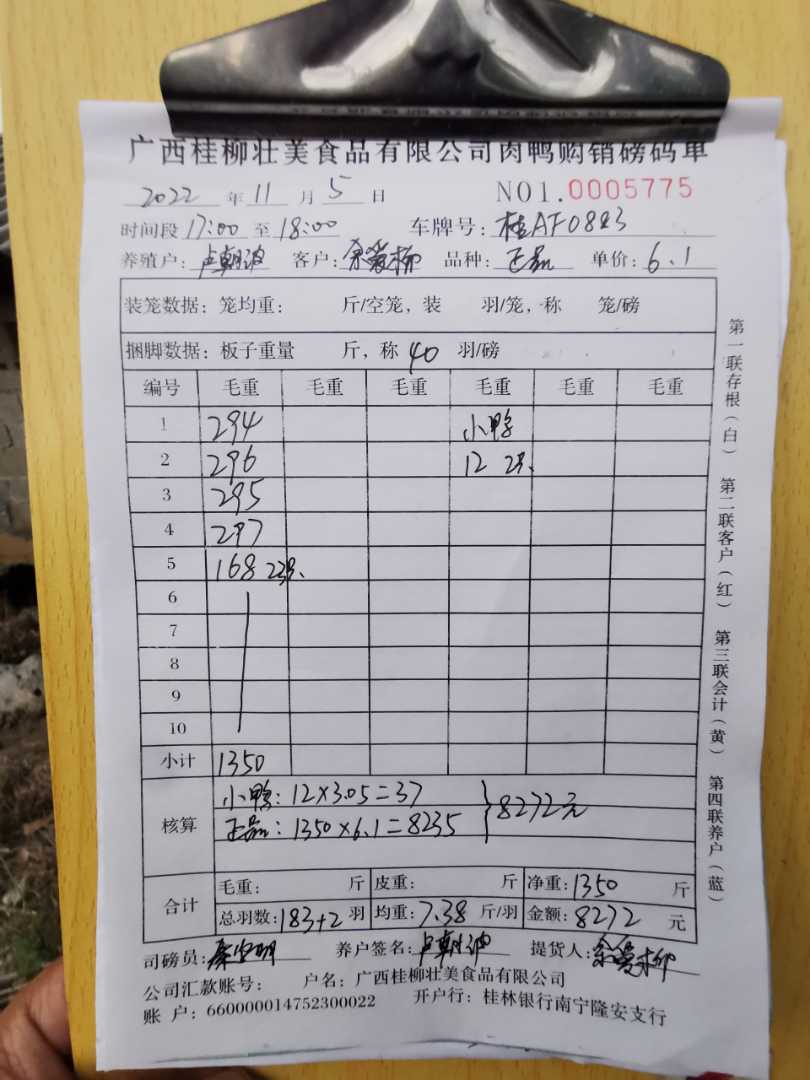 广西桂柳壮美食品有限公司肉鸭购销磅码单
2022 年 11 月 5 日 NO1.0005775
时间段 17:00 至 18:00 车牌号: 桂AF0843
养殖户: 卢朝波 客户: 余爱柳 品种: 正品 单价: 6.1
装笼数据: 笼均重: 斤/空笼, 装 羽/笼, 称 笼/磅
捆脚数据: 板子重量 斤, 称 40 羽/磅
编号 毛重 毛重 毛重 毛重 毛重 毛重
1 294 小鸭
2 296 12 2只
3 295
4 297
5 168 23只
6
7
8
9
10
小计 1350
核算 小鸭: 12×3.05=37 }8272元
正品: 1350×6.1=8235
合计 毛重: 斤 皮重: 斤 净重: 1350 斤
总羽数: 183+2 羽 均重: 7.38 斤/羽 金额: 8272 元
司磅员: 养户签名: 卢朝波 提货人: 余爱柳
公司汇款账号: 户名: 广西桂柳壮美食品有限公司
账 户: 660000014752300022 开户行: 桂林银行南宁隆安支行
第一联存根(白) 第二联客户(红) 第三联会计(黄) 第四联养户(蓝)